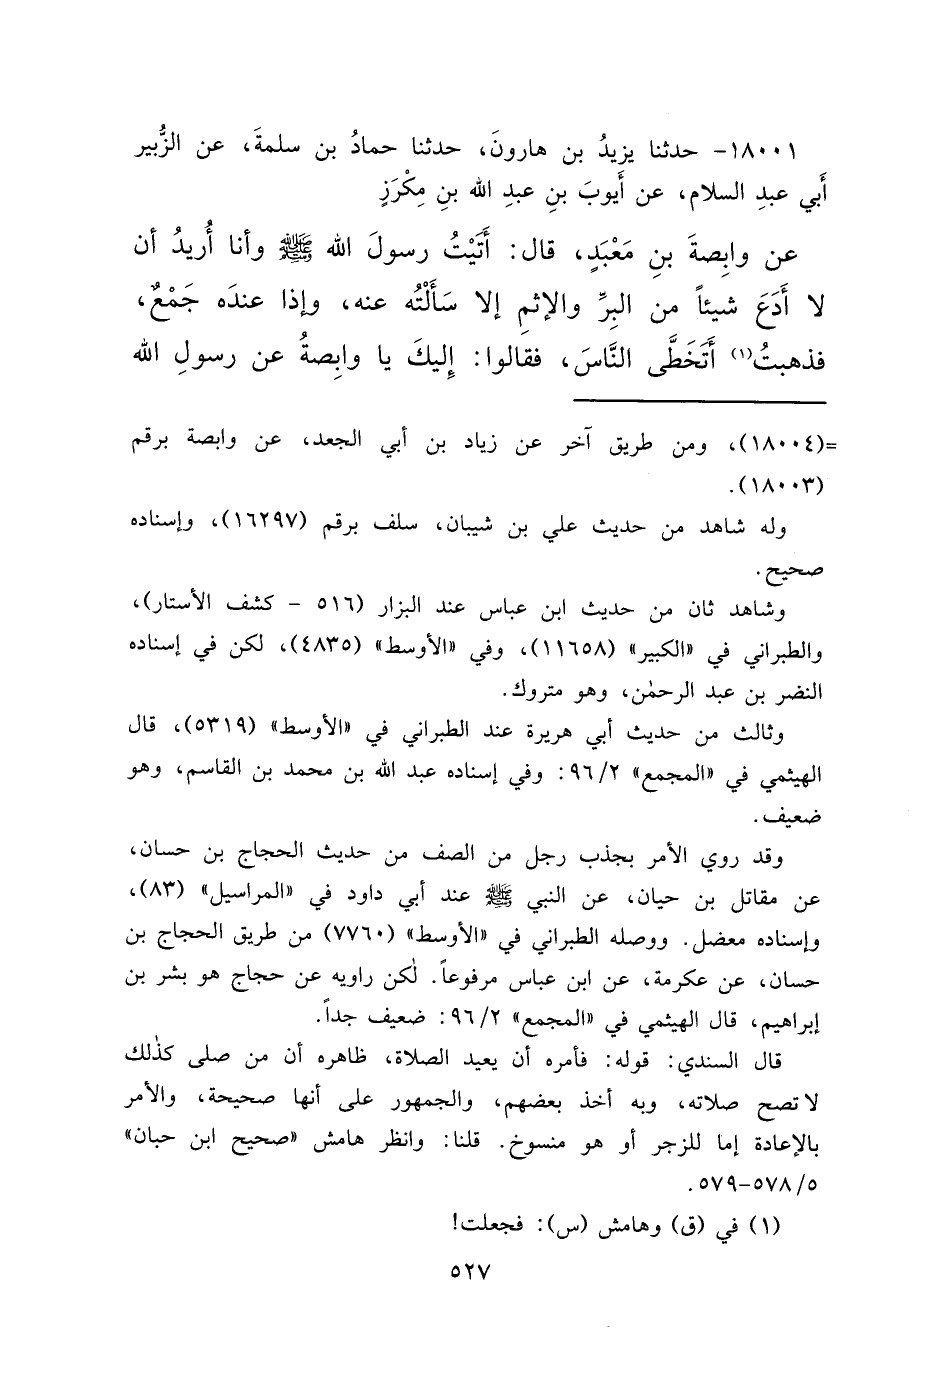 ١٨٠٠١- حدثنا يزيدُ بن هارونَ، حدثنا حمادُ بن سلمةَ، عن الزُّبير
أَبي عبدِ السلام، عن أَيوبَ بنِ عبدِ الله بنِ مِكْرَزٍ
عن وابِصةَ بنِ مَعْبَدٍ، قال: أَتَيْتُ رسولَ الله ﷺ وأنا أُريدُ أن
لا أَدَعَ شيئاً من البِرِّ والإثمِ إلا سَأَلْتُه عنه، وإذا عندَه جَمْعٌ،
فذهبتُ(١) أَتَخَطَّى النَّاسَ، فقالوا: إِليكَ يا وابِصةُ عن رسولِ الله
=(١٨٠٠٤)، ومن طريق آخر عن زياد بن أبي الجعد، عن وابصة برقم
(١٨٠٠٣).
وله شاهد من حديث علي بن شيبان، سلف برقم (١٦٢٩٧)، وإسناده
صحيح.
وشاهد ثان من حديث ابن عباس عند البزار (٥١٦ - كشف الأستار)،
والطبراني في «الكبير» (١١٦٥٨)، وفي «الأوسط» (٤٨٣٥)، لكن في إسناده
النضر بن عبد الرحمٰن، وهو متروك.
وثالث من حديث أبي هريرة عند الطبراني في «الأوسط» (٥٣١٩)، قال
الهيثمي في «المجمع» ٩٦/٢: وفي إسناده عبد الله بن محمد بن القاسم، وهو
ضعيف.
وقد روي الأمر بجذب رجل من الصف من حديث الحجاج بن حسان،
عن مقاتل بن حيان، عن النبي ﷺ عند أبي داود في «المراسيل» (٨٣)،
وإسناده معضل. ووصله الطبراني في «الأوسط» (٧٧٦٠) من طريق الحجاج بن
حسان، عن عكرمة، عن ابن عباس مرفوعاً. لٰكن راويه عن حجاج هو بشر بن
إبراهيم، قال الهيثمي في «المجمع» ٩٦/٢: ضعيف جداً.
قال السندي: قوله: فأمره أن يعيد الصلاة، ظاهره أن من صلى كذٰلك
لا تصح صلاته، وبه أخذ بعضهم، والجمهور على أنها صحيحة، والأمر
بالإعادة إما للزجر أو هو منسوخ. قلنا: وانظر هامش «صحيح ابن حبان»
٥٧٨/٥-٥٧٩.
(١) في (ق) وهامش (س): فجعلت!
٥٢٧